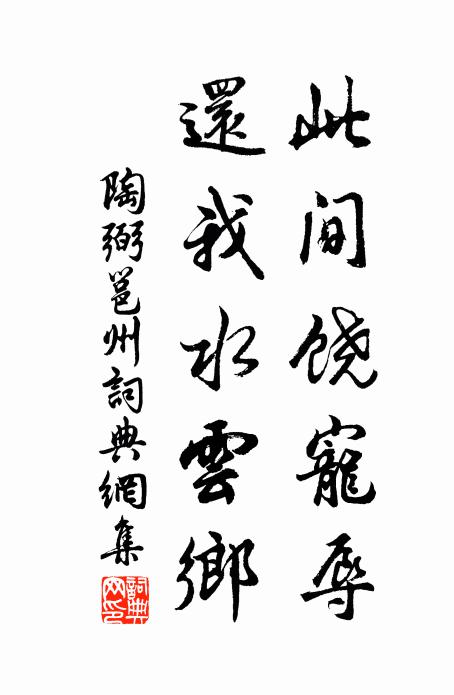 此间饶寵辱
還我水雲鄉
陶弼邕州詞典網集
詞典网印